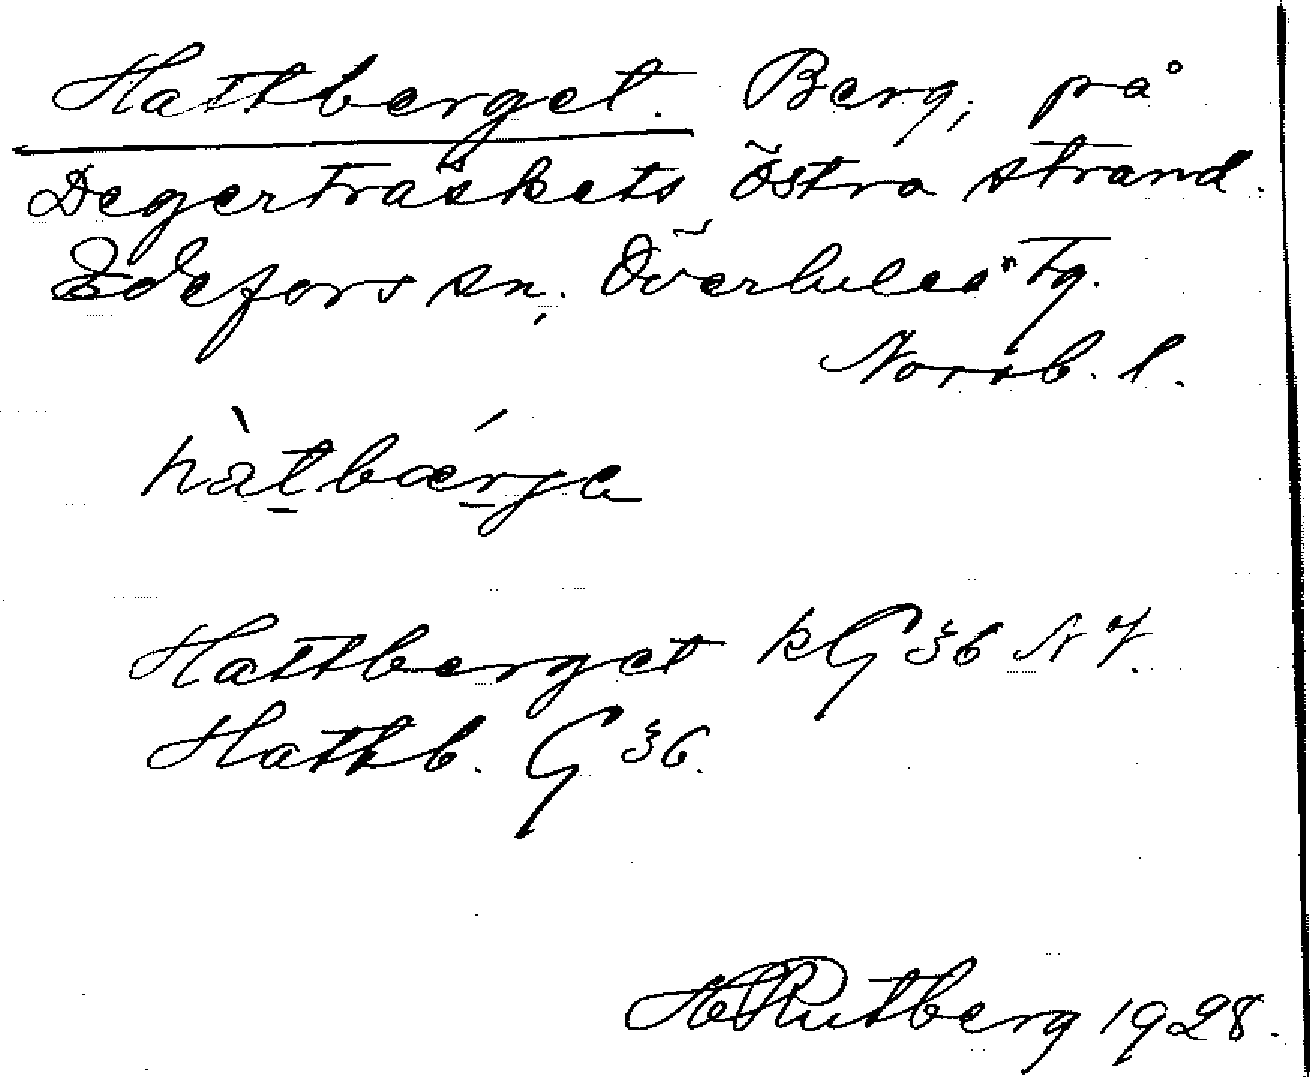 Hattberget. Berg, på
Degerträskets östra strand.
Edefors sn, Överluleå tg.
Norrb. l.
hàtbǽrja
Hattberget kG 36 N V.
Hattb. G 36.
H Rutberg 1928.